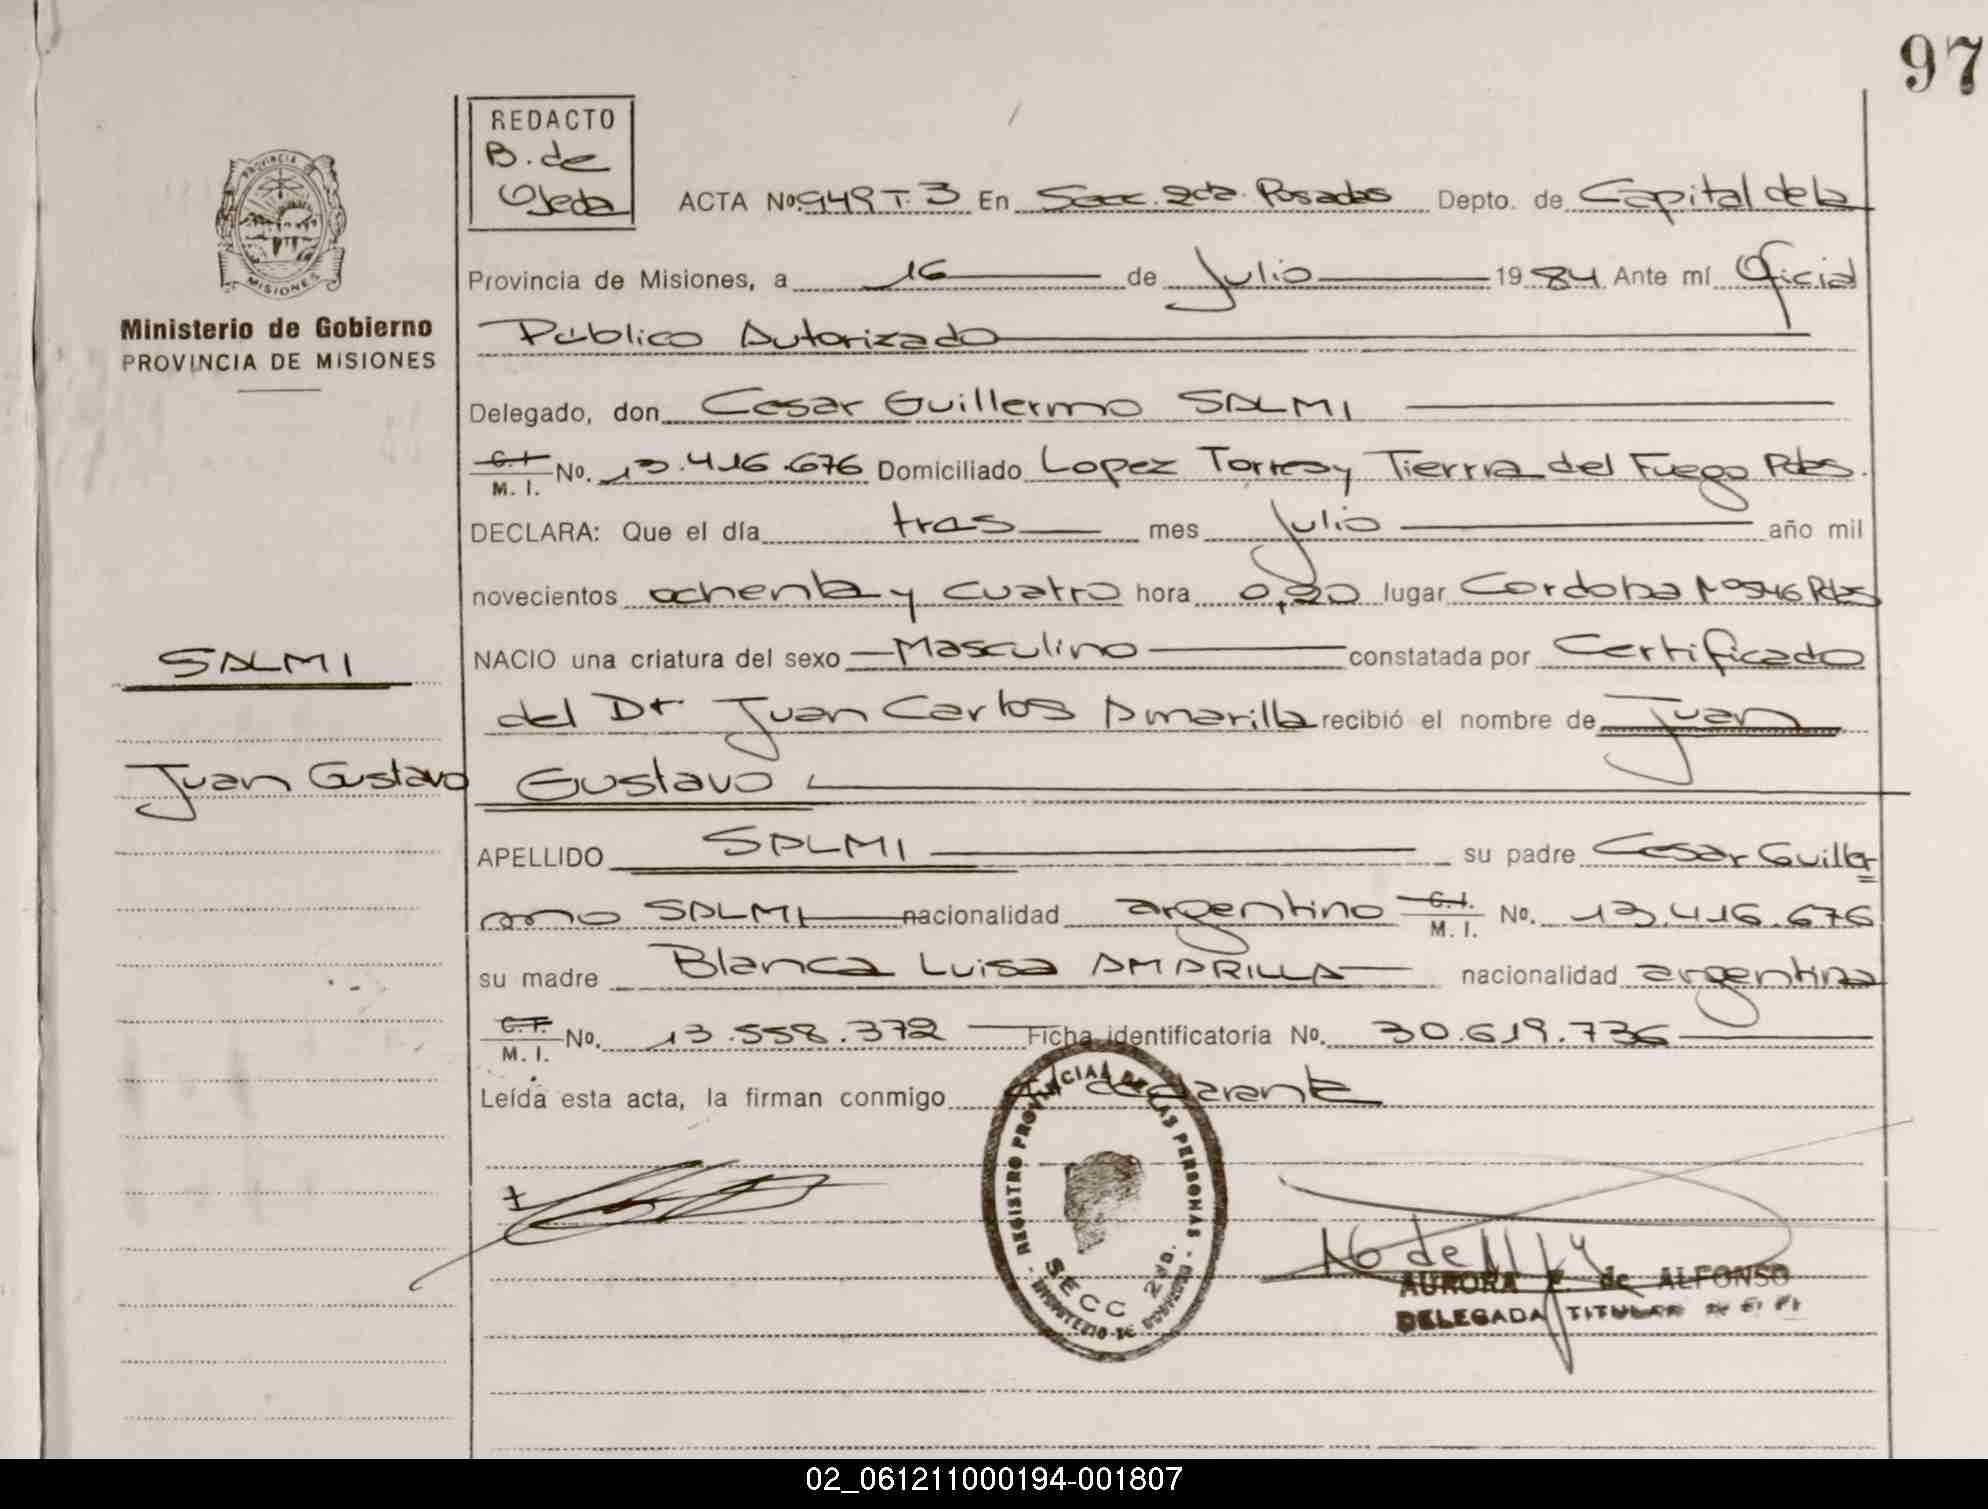 97
REDACTO
B. de
Ojeda
ACTA Nº 949 T. 3 En Secc. 2da. Posadas Depto. de Capital de la
Provincia de Misiones, a 16 de Julio 1984 Ante mí Oficial
Público Autorizado
Delegado, don Cesar Guillermo SALMI
C.I. M. I. No. 13.416.676 Domiciliado Lopez Torres y Tierra del Fuego Pdas.
DECLARA: Que el día tras mes Julio año mil
novecientos ochenta y cuatro hora 0,20 lugar Cordoba Nº 546 Pdas
NACIO una criatura del sexo Masculino constatada por Certificado
del Dr. Juan Carlos Amarilla recibió el nombre de Juan
Gustavo
APELLIDO SALMI su padre Cesar Guiller
mo SALMI nacionalidad argentino C.I. M. I. No. 13.416.676
su madre Blanca Luisa AMARILLA nacionalidad argentina
C.I. M. I. No. 13.558.372 Ficha identificatoria No. 30.619.736
Leída esta acta, la firman conmigo declarante
PROVINCIA DE MISIONES
Ministerio de Gobierno
PROVINCIA DE MISIONES
SALMI
Juan Gustavo
REGISTRO PROVINCIAL DE LAS PERSONAS
SECC 2da.
AURORA de ALFONSO
DELEGADA TITULAR
02_061211000194-001807